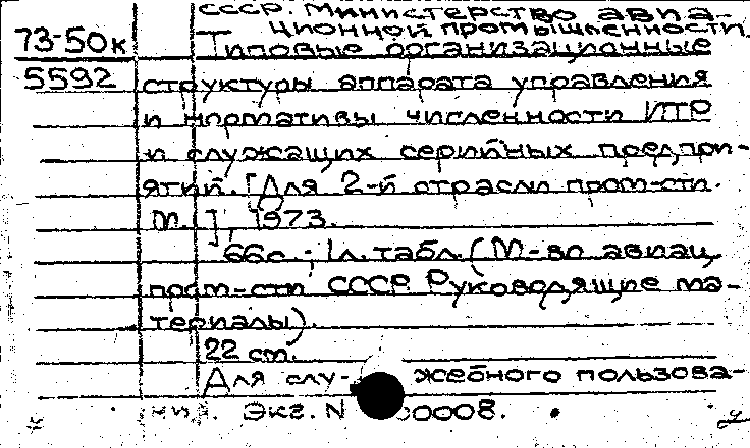 СССР. Министерство авиа-
ционной промышленности.
73-50к
Типовые организационные
5592
структуры аппарата управления
и нормативы численности ИТР
и служащих серийных предпри-
ятий. [Для 2-й отрасли пром-сти.
М.], 1973.
66с.; 1л. табл. (М-во авиац.
пром-сти СССР. Руководящие ма-
териалы).
22 см.
Для служебного пользова-
ния. Экз. N 00008.